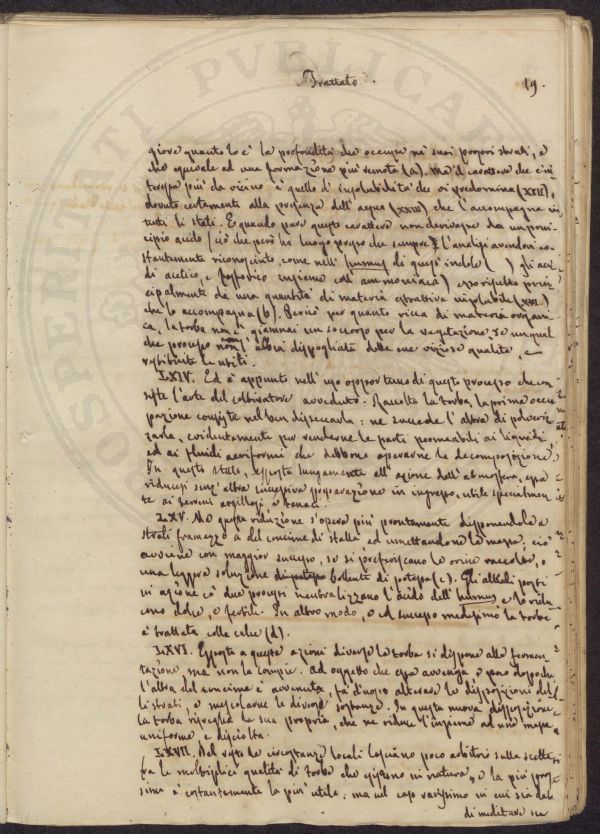 PROSPERITATI PVBLICAE
Trattato.
19.
giore quanto lo è la profondità che occupa ne' suoi propri strati, o
che equivale ad una formazione più remota (a). Ma il carattere che c'in-
teressa più da vicino è quello d'insolubilità che vi predomina (XXII),
dovuto certamente alla presenza dell'acqua (XXIII), che l'accompagna in
tutti li stati. E quando pure questo carattere non derivasse da un prin-
cipio acido (ciò che però ha luogo presso che sempre, l'analisi avendovi co-
stantemente riconosciuto, come nell'humus di quest'indole ( ) gli aci-
di acetico, e fosforico insieme coll'ammoniaca) essa risulta prin-
cipalmente da una quantità di materia estrattiva insolubile (XXI.)
che lo accompagna (b). Perciò per quanto ricca di materia organi-
ca, la torba non è giammai un soccorso per la vegetazione se un qual-
che processo non l'abbia dispogliata delle sue viziose qualità, e
restituite le utili.
LXIV. Ed è appunto nell'uso opportuno di questo processo che con-
siste l'arte del coltivatore avveduto. Raccolta la torba, la prima occu-
pazione consiste nel ben disseccarla: ne succede l'altra di polveriz-
zarla, evidentemente per renderne le parti permeabili ai liquidi,
ed ai fluidi aeriformi che debbono operarne la decomposizione.
In questo stato, esposta lungamente all'azione dell'atmosfera, essa
riducesi senz'altra successiva preparazione in ingrasso, utile specialmen-
te ai terreni argillosi e tenaci.
LXV. Ma questa riduzione s'opera più prontamente disponendola a
strati frammezzo a del concime di stalla ed umettandone la massa; ciò
avviene con maggior successo, se si preferiscano le orine raccolte, o
una leggera soluzione di potassa bollente di potassa (c). Gli alkali posti
in azione ne' due processi neutralizzano l'acido dell'humus e lo ridu-
cono dolce, e fertile. In altro modo, e al successo medesimo la torba
è trattata colla calce (d).
LXVI. Esposta a queste azioni diverse la torba si dispone alla fermen-
tazione, ma non la compie. Ad oggetto che essa avvenga e poco dopo che
l'altra del concime è avvenuta, fa d'uopo alterare la disposizione del-
li strati, e mescolarne le diverse sostanze. In questa nuova disposizione
la torba risveglia la sua propria, che ne riduce l'insieme ad una massa
uniforme e disciolta.
LXVII. Nel resto le circostanze locali lasciano poco arbitrio sulla scelta
fra le moltiplici qualità di torba che esistono in natura, e la più pros-
sima è costantemente la più utile: ma nel caso rarissimo in cui sia dato
di meditare su